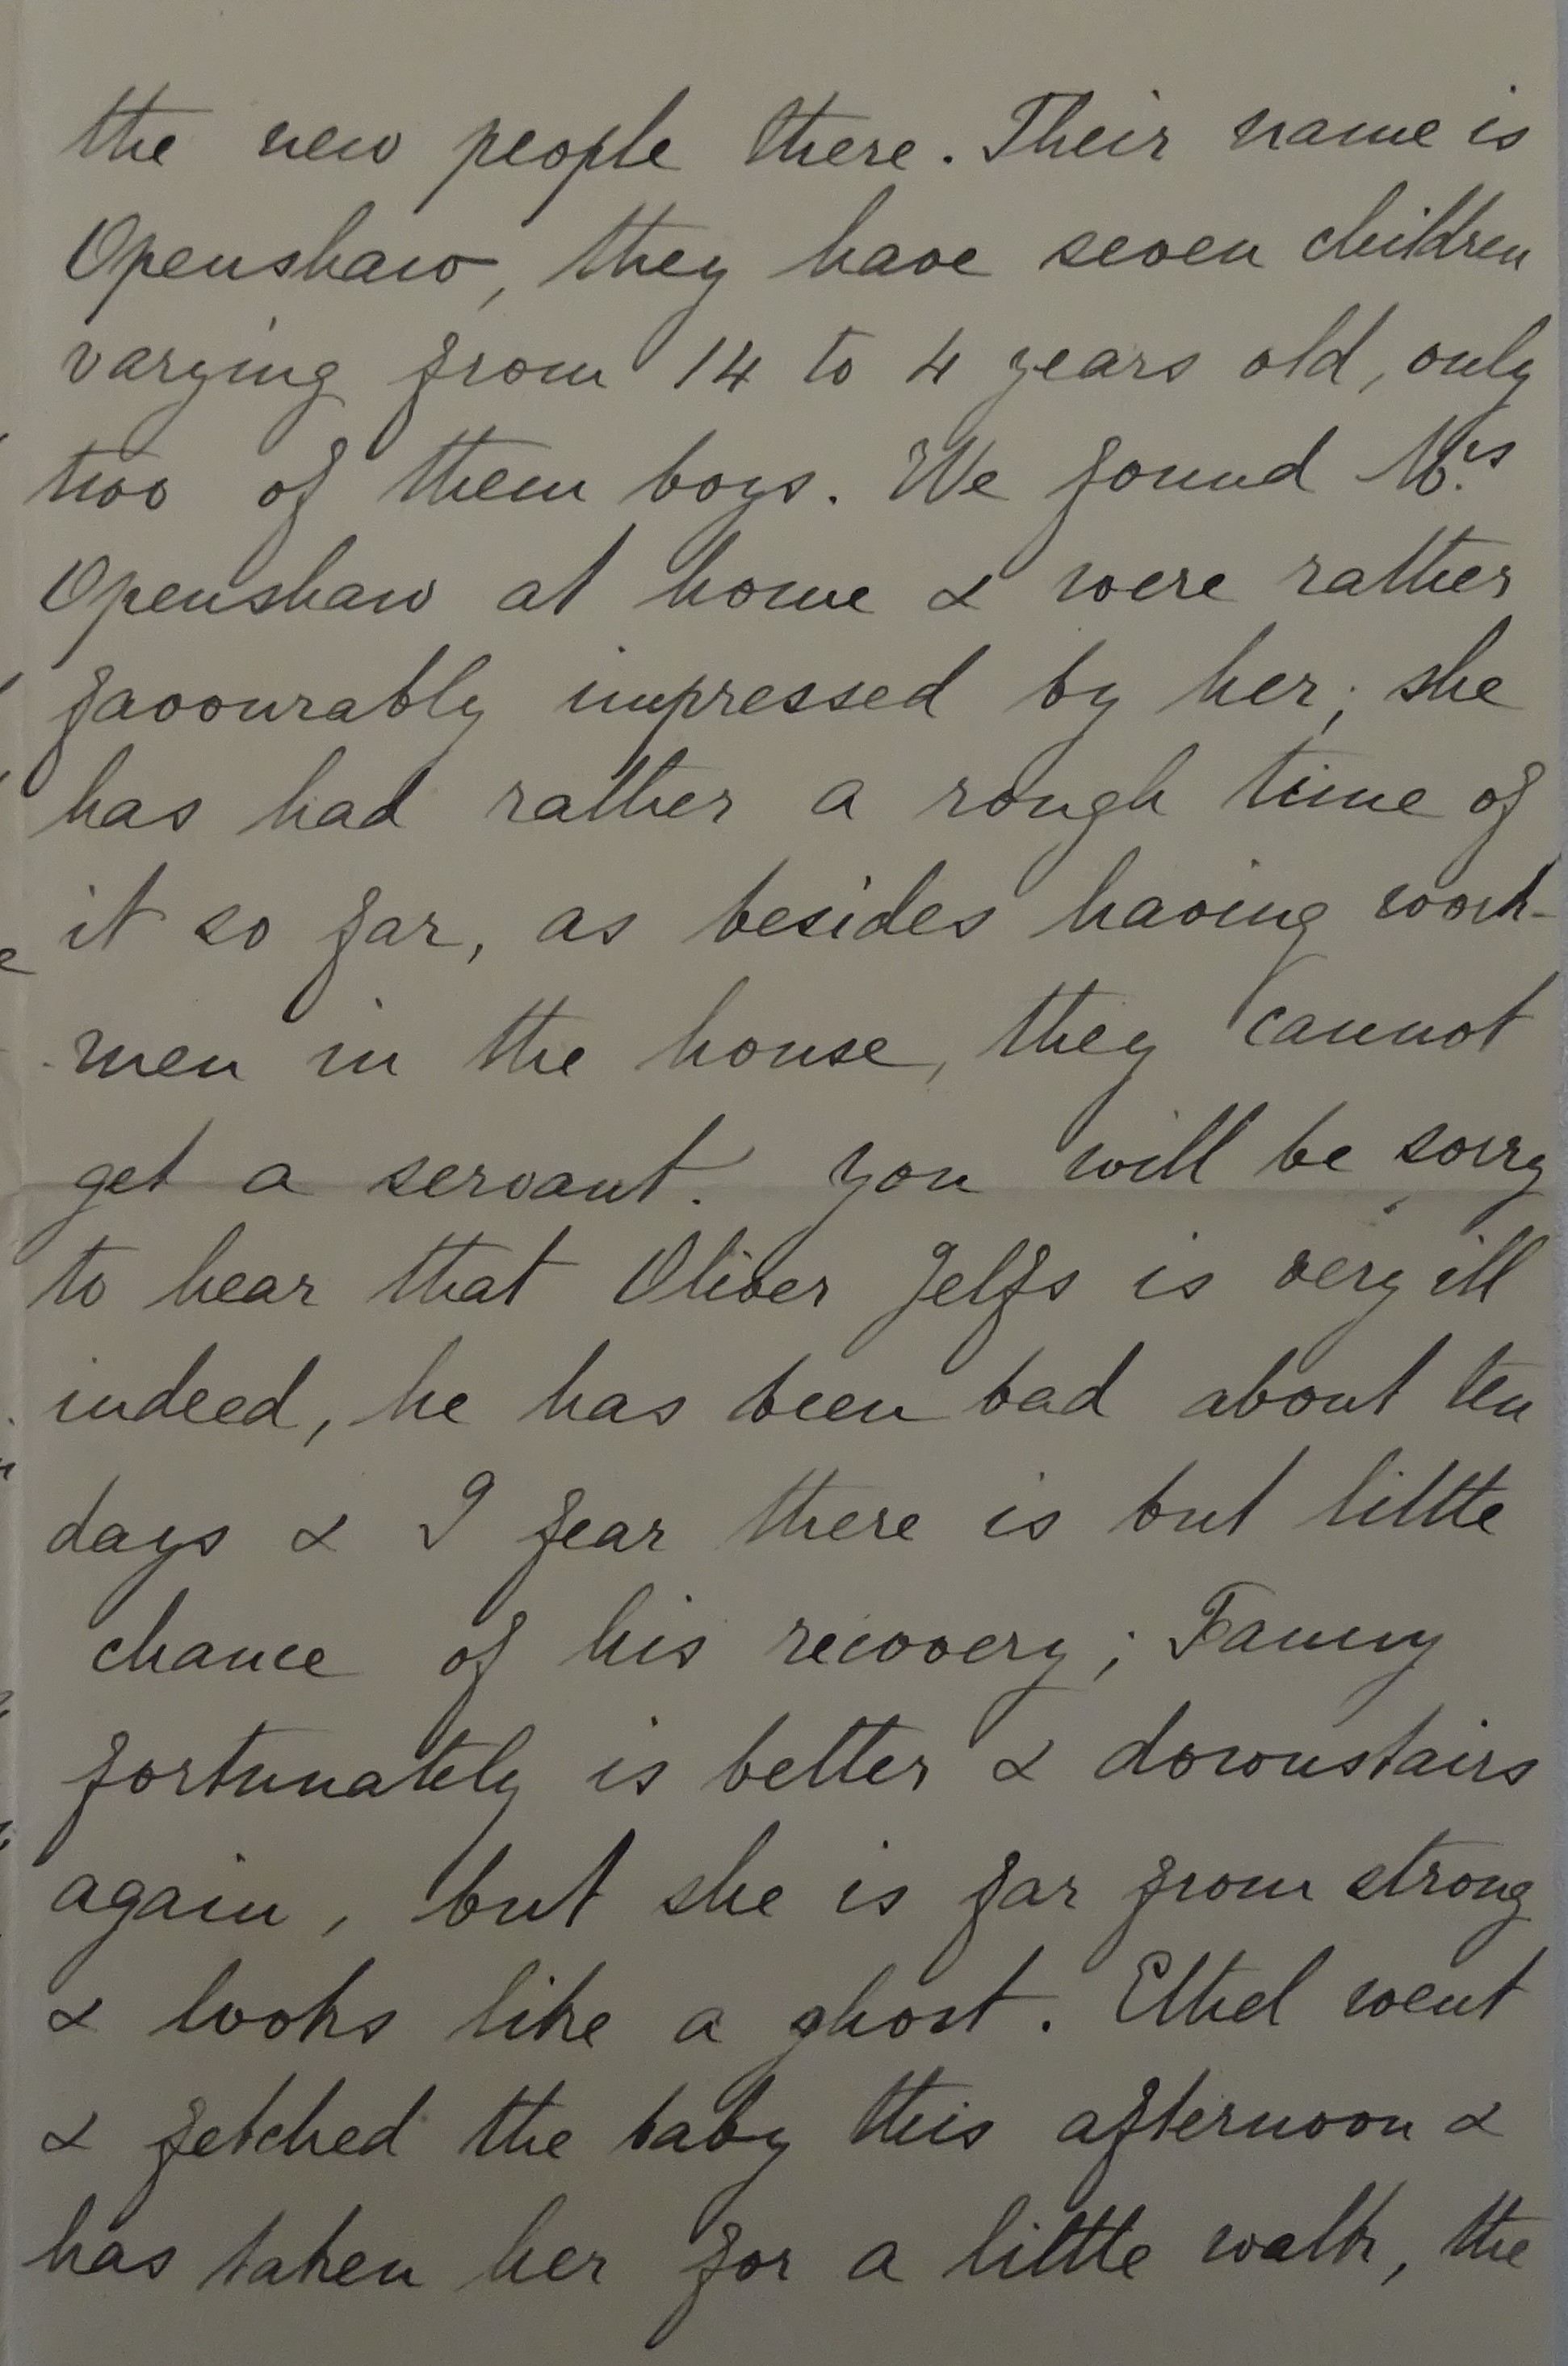 the new people there. Their name is
Openshaw, they have seven children
varying from 14 to 4 years old, only
two of them boys. We found Mrs.
Openshaw at home & were rather
favourably impressed by her; she
has had rather a rough time of
it so far, as besides having work-
men in the house, they cannot
get a servant. You will be sorry
to hear that Oliver Jelfs is very ill
indeed, he has been bad about ten
days & I fear there is but little
chance of his recovery; Fanny
fortunately is better & downstairs
again, but she is far from strong
& looks like a ghost. Ethel went
& fetched the baby this afternoon &
has taken her for a little walk, the